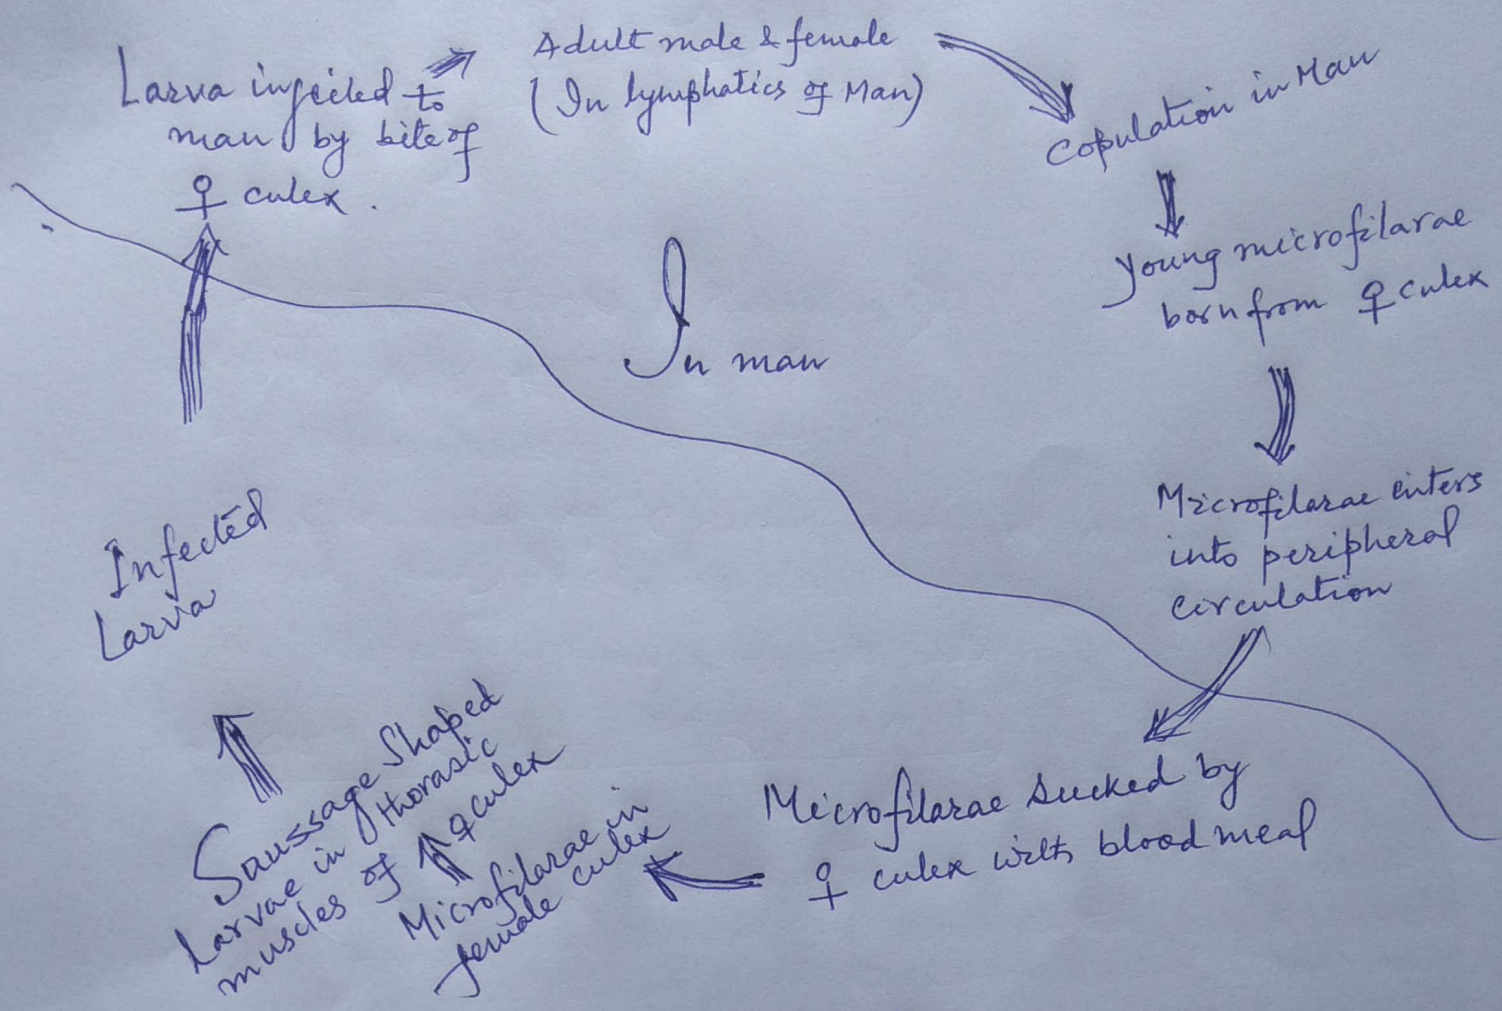 Larva injected to
man by bite of
♀ culex.
Adult male & female
(In lymphatics of Man)
Copulation in Man
Young microfilarae
born from ♀ culex
Microfilarae enters
into peripheral
circulation
In man
Microfilarae sucked by
♀ culex with blood meal
Microfilarae in
female culex
Saussage Shaped
Larvae in thorasic
muscles of ♀ culex
Infected
Larva